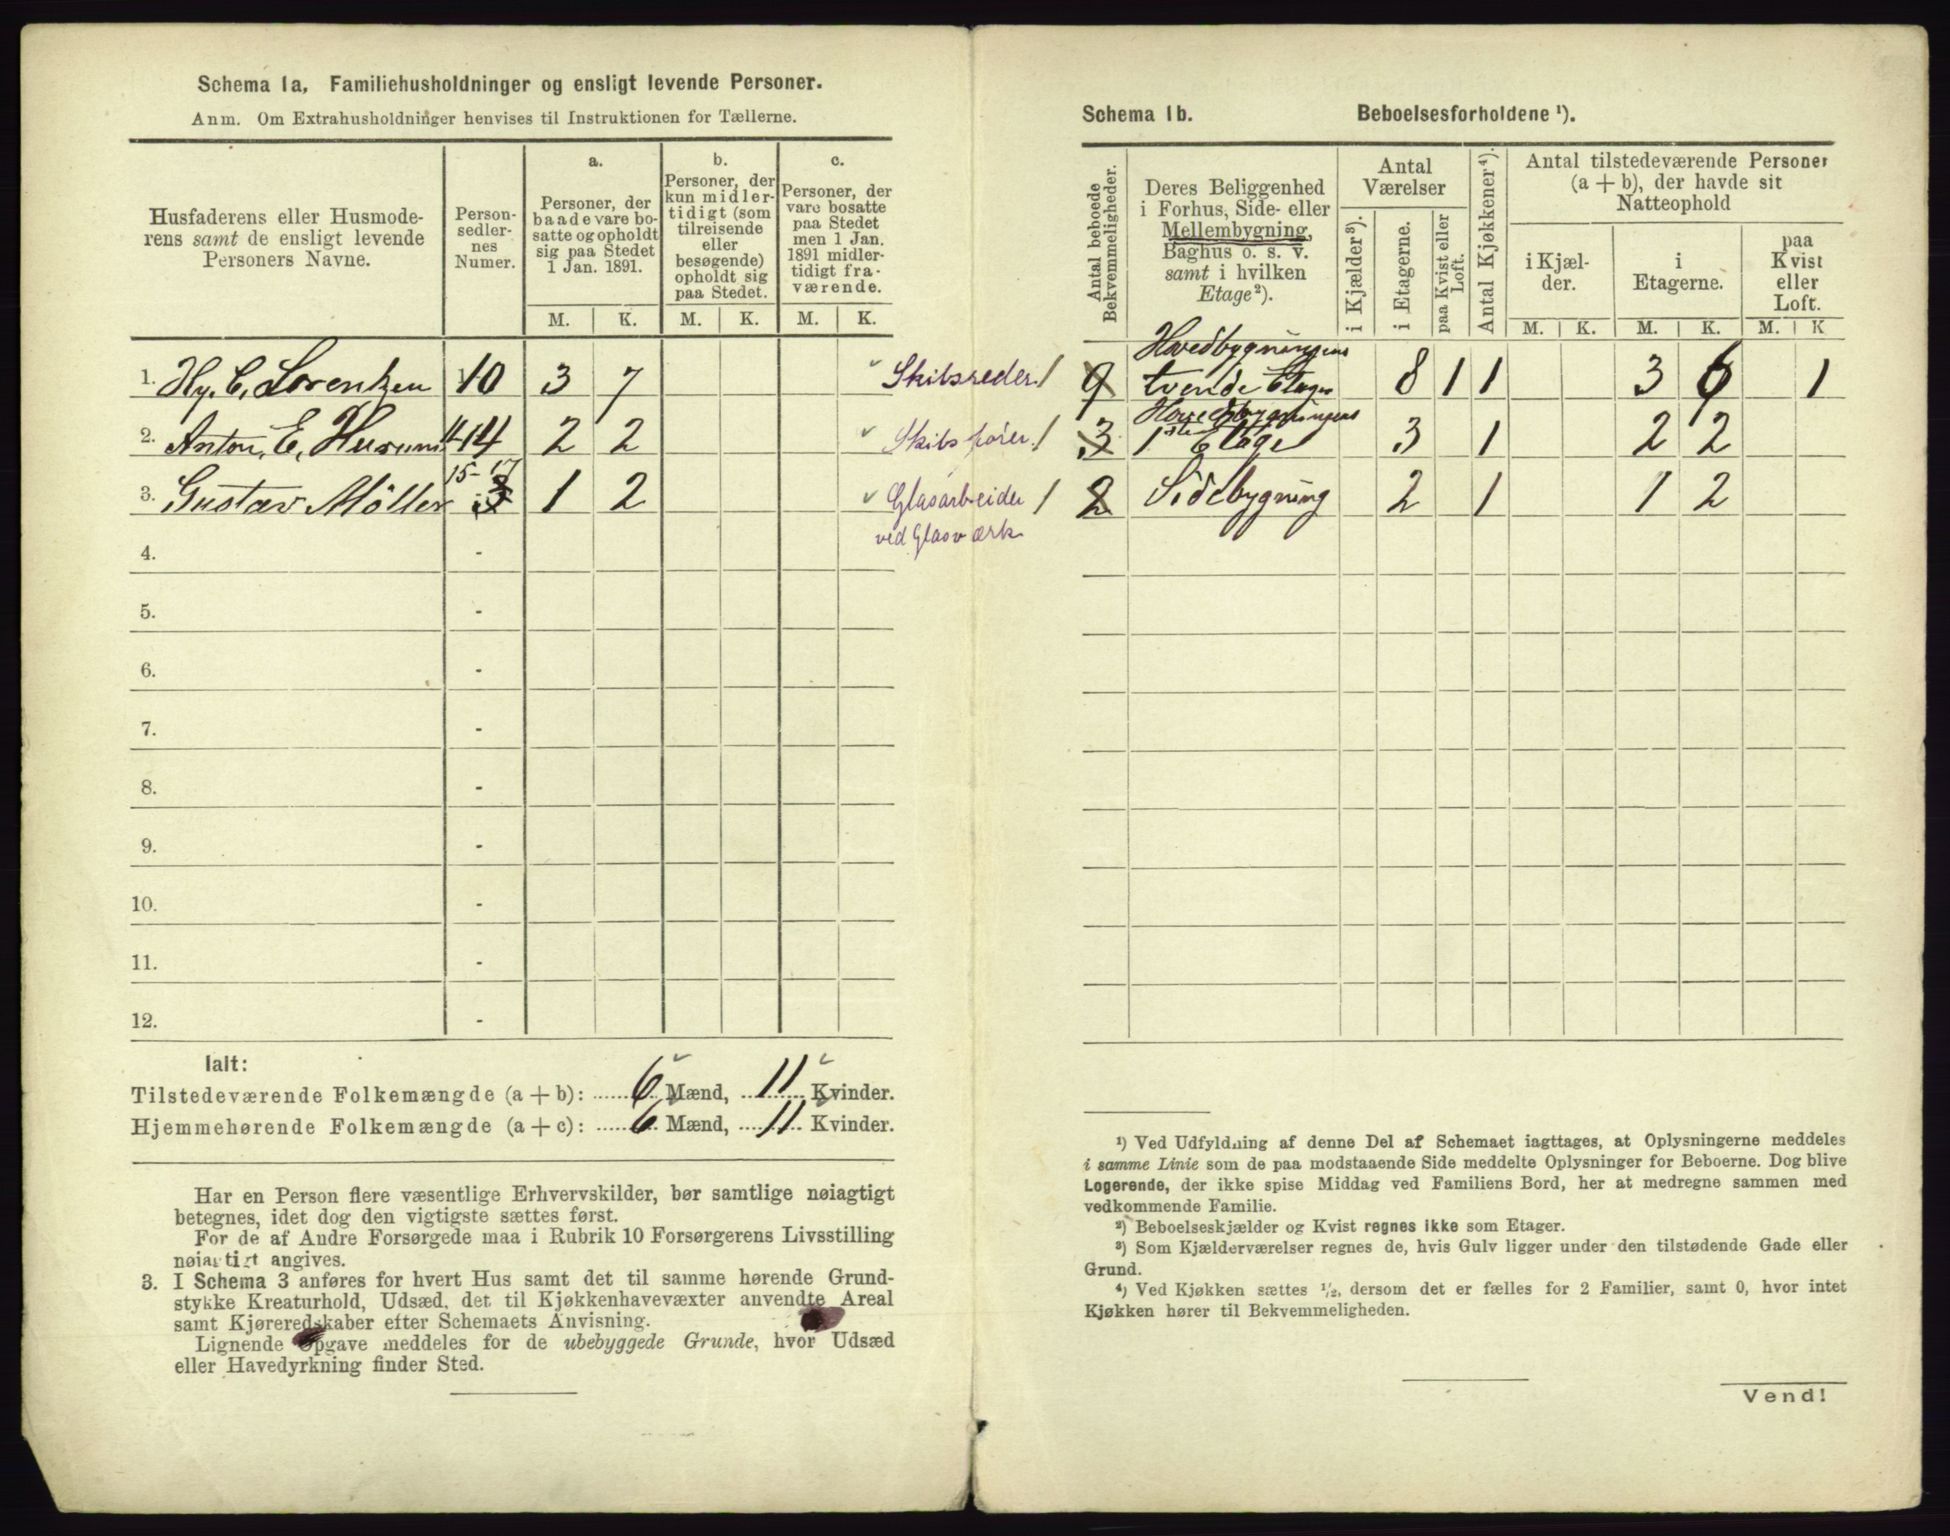 Schema 1a, Familiehusholdninger og ensligt levende Personer.
Anm. Om Extrahusholdninger henvises til Instruktionen for Tællerne.
Husfaderens eller Husmode-
rens samt de ensligt levende
Personers Navne.
Person-
sedler-
nes
Numer.
a.
Personer, der
baade vare bo-
satte og opholdt
sig paa Stedet
1 Jan. 1891.
b.
Personer, der
kun midler-
tidigt (som
tilreisende
eller
besøgende)
opholdt sig
paa Stedet.
c.
Personer, der
vare bosatte
paa Stedet
men 1 Jan.
1891 midler-
tidigt fra-
værende.
M. K. M. K. M. K.
1. Hy. C. Lorentzen 1-10 3 7 Skibsreder
2. Anton. E. Husum 11-14 2 2 Skibsfører
3. Gustav Møller 15-17 1 2 Glasarbeider
ved Glasværk
4. -
5. -
6. -
7. -
8. -
9. -
10. -
11. -
12. -
Ialt:
Tilstedeværende Folkemængde (a + b): 6 Mænd, 11 Kvinder.
Hjemmehørende Folkemængde (a + c): 6 Mænd, 11 Kvinder.
Har en Person flere væsentlige Erhvervskilder, bør samtlige nøiagtigt
betegnes, idet dog den vigtigste sættes først.
For de af Andre Forsørgede maa i Rubrik 10 Forsørgerens Livsstilling
nøiagtigt angives.
3. I Schema 3 anføres for hvert Hus samt det til samme hørende Grund-
stykke Kreaturhold, Udsæd, det til Kjøkkenhavevæxter anvendte Areal
samt Kjøreredskaber efter Schemaets Anvisning.
Lignende Opgave meddeles for de ubebyggede Grunde, hvor Udsæd
eller Havedyrkning finder Sted.
Schema 1b. Beboelsesforholdene ¹).
Antal beboede
Bekvemmeligheder.
Deres Beliggenhed
i Forhus, Side- eller
Mellembygning,
Baghus o. s. v.
samt i hvilken
Etage²).
Antal
Værelser
i Kjælder³).
i Etagerne.
paa Kvist eller
Loft.
Antal Kjøkkener⁴).
Antal tilstedeværende Personer
(a + b), der havde sit
Natteophold
i Kjæl-
der.
i
Etagerne.
paa
Kvist
eller
Loft.
M. K. M. K. M. K
Hovedbygningens
1 9 tvende Etager 8 1 1 3 6 1
Hovedbygningens
1 3 1ste Etage 3 1 2 2
1 2 Sidebygning 2 1 1 2
¹) Ved Udfyldning af denne Del af Schemaet iagttages, at Oplysningerne meddeles
i samme Linie som de paa modstaaende Side meddelte Oplysninger for Beboerne. Dog blive
Logerende, der ikke spise Middag ved Familiens Bord, her at medregne sammen med
vedkommende Familie.
²) Beboelseskjælder og Kvist regnes ikke som Etager.
³) Som Kjælderværelser regnes de, hvis Gulv ligger under den tilstødende Gade eller
Grund.
⁴) Ved Kjøkken sættes ½, dersom det er fælles for 2 Familier, samt 0, hvor intet
Kjøkken hører til Bekvemmeligheden.
Vend!